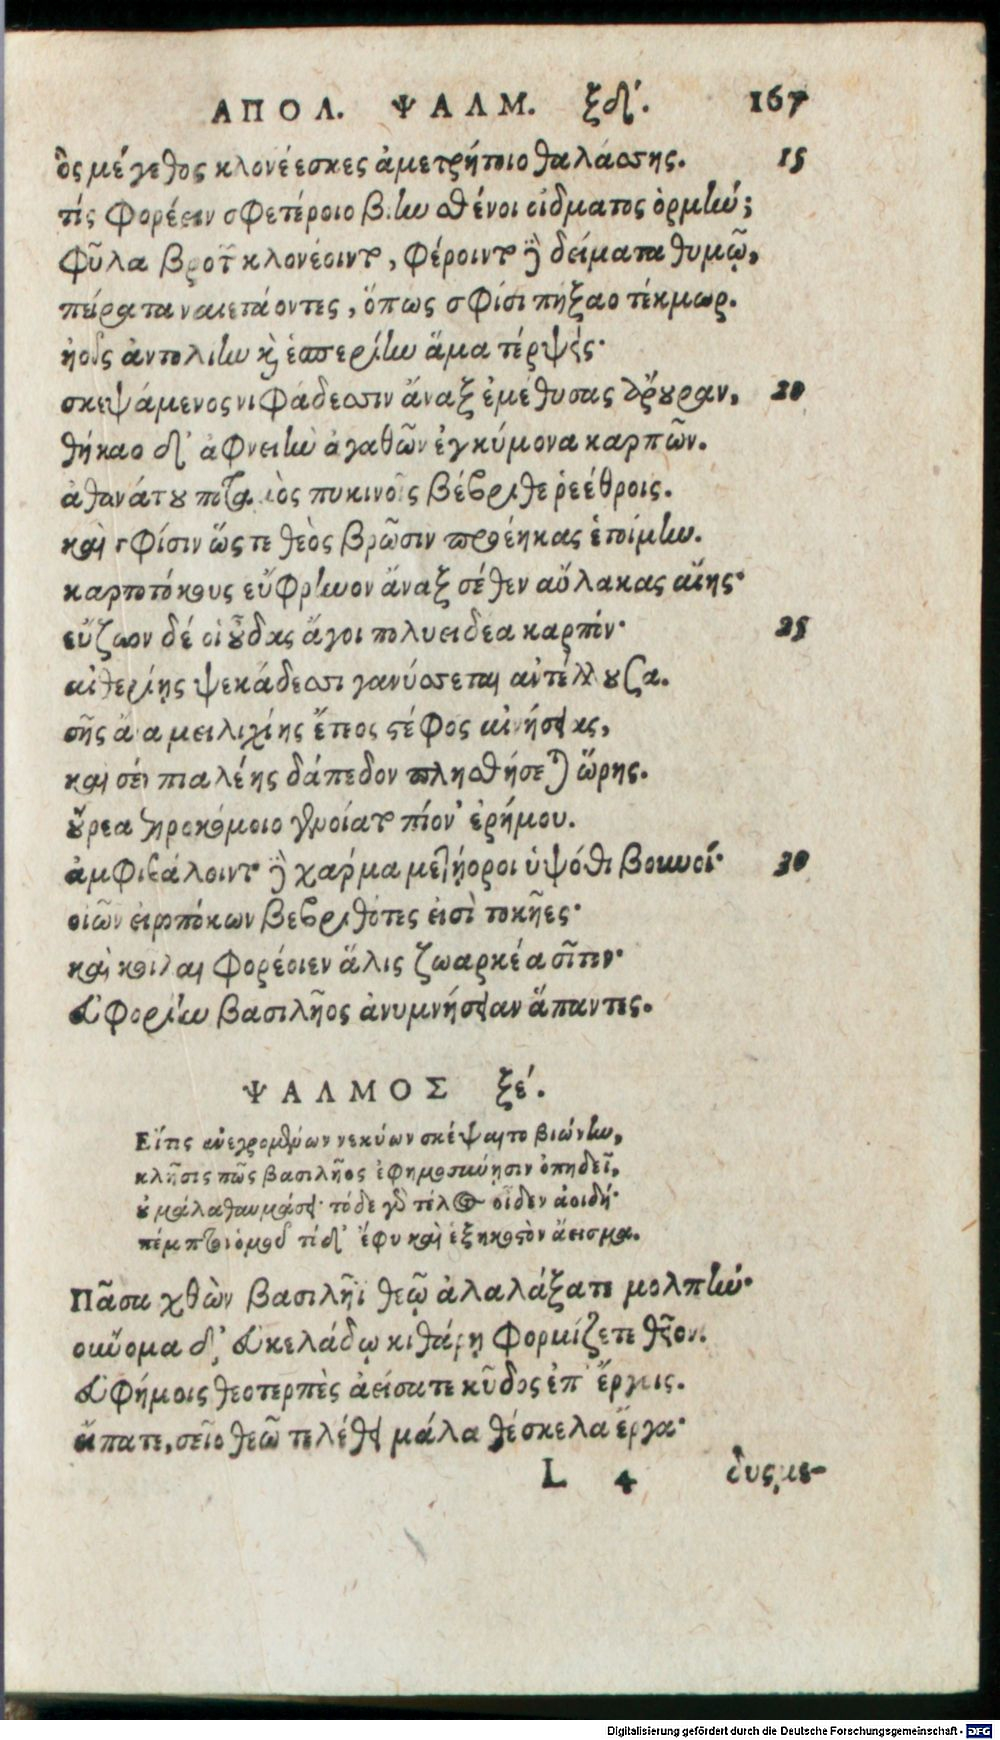 ΑΠΟΛ. ΨΑΛΜ. ξδ΄. 167
ὃς μέγεθος κλονέεσκες ἀμετρήτοιο θαλάσσης. 15
τίς φορέειν σφετέροιο σθένοι οἴδματος ὁρμήν;
φῦλα κλονέοιντο, φέροιντο δείματα θυμῷ,
πείρατα ναιετάοντες, ὅπως σφίσι πήξαο τέκμωρ.
ἠοῦς ἀντολίην καὶ ἑσπερίην ἅμα τέρψεις·
σκεψάμενος νιφάδεσσιν ἄναξ ἐμέθυσας ἄρουραν, 20
θήκαο δ' ἀφνειὴν ἀγαθῶν ἐγκύμονα καρπῶν.
ἀθανάτου πυκινοῖς βέβριθε ῥεέθροις.
καὶ σφίσιν ὥς τε θεὸς βρῶσιν προέηκας ἑτοίμην.
καρποτόκους εὔφρηνον ἄναξ σέθεν αὔλακας αἴης·
εὔζωον δέ οἱ οὖδας ἄγοι πολυειδέα καρπόν· 25
αἰθερίης ψεκάδεσσι γανύσσεται ἀντέλλουσα.
σῆς μειλιχίης ἔτεος στέφος αἰνήσεις,
καὶ σέο πιαλέης δάπεδον πλησθήσεται ὥρης.
οὔρεα πίον' ἐρήμου.
ἀμφιβάλοιντο χάρμα μετήοροι ὑψόθι βουνοί· 30
οἰῶν εἰροπόκων βεβριθότες εἰσὶ τοκῆες·
καὶ κοῖλαι φορέοιεν ἅλις ζωαρκέα σῖτον·
εὐφορίην βασιλῆος ἀνυμνήσειαν ἅπαντες.
ΨΑΛΜΟΣ ξε΄.
Εἴ τις ἀνεγρομένων νεκύων σκέψαιτο βιώνην,
κλῆσις πῶς βασιλῆος ἐφημοσύνῃσιν ὀπηδεῖ,
οὐ μάλα θαυμάσει· τόδε γὰρ τέλος οἶδεν ἀοιδή·
πέμπτον ὁμοῦ τόδ' ἔφυ καὶ ἑξηκοστὸν ἄεισμα.
Πᾶσα χθὼν βασιλῆϊ θεῷ ἀλαλάξατε μολπήν·
οὔνομα δ' εὐκελάδῳ κιθάρῃ φορμίζετε θεῖον.
εὐφήμοις θεοτερπὲς ἀείσατε κῦδος ἐπ' ἔργοις.
εἴπατε, σεῖο θεῶ τελέθει μάλα θέσκελα ἔργα·
L 4 δυσμε-
Digitalisierung gefördert durch die Deutsche Forschungsgemeinschaft - DFG